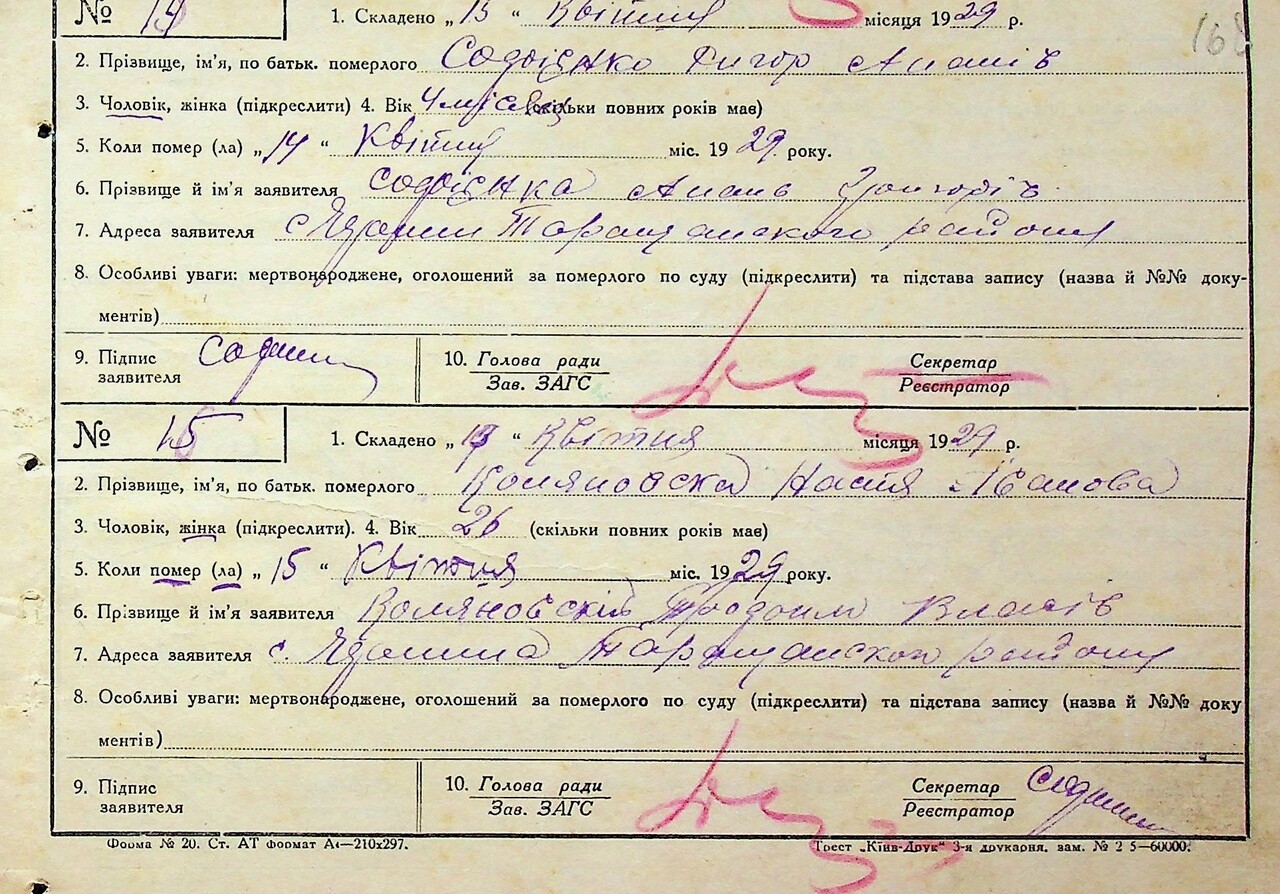 № 14 1. Складено „ 15 “ Квітня місяця 1929 р.
168
2. Прізвище, ім'я, по батьк. померлого
3. Чоловік, жінка (підкреслити) 4. Вік 4 місяц (скільки повних років має)
5. Коли помер (ла) „ 14 “ Квітня міс. 1929 року.
6. Прізвище й ім'я заявителя
7. Адреса заявителя с. Таращанского району
8. Особливі уваги: мертвонароджене, оголошений за померлого по суду (підкреслити) та підстава запису (назва й №№ доку-
ментів)
9. Підпис заявителя
10. Голова ради Секретар
Зав. ЗАГС Реєстратор
№ 15 1. Складено „ “ Квітня місяця 1929 р.
2. Прізвище, ім'я, по батьк. померлого Коляновска Настя Іванова
3. Чоловік, жінка (підкреслити). 4. Вік 26 (скільки повних років має)
5. Коли помер (ла) „ 15 “ Квітня міс. 1929 року.
6. Прізвище й ім'я заявителя Коляновскій Власів
7. Адреса заявителя с. Таращанского району
8. Особливі уваги: мертвонароджене, оголошений за померлого по суду (підкреслити) та підстава запису (назва й №№ доку
ментів)
9. Підпис заявителя
10. Голова ради Секретар
Зав. ЗАГС Реєстратор
Форма № 20. Ст. АТ Формат А4—210х297. Трест „Київ-Друк“ 3-я друкарня. зам. № 2 5—60000.